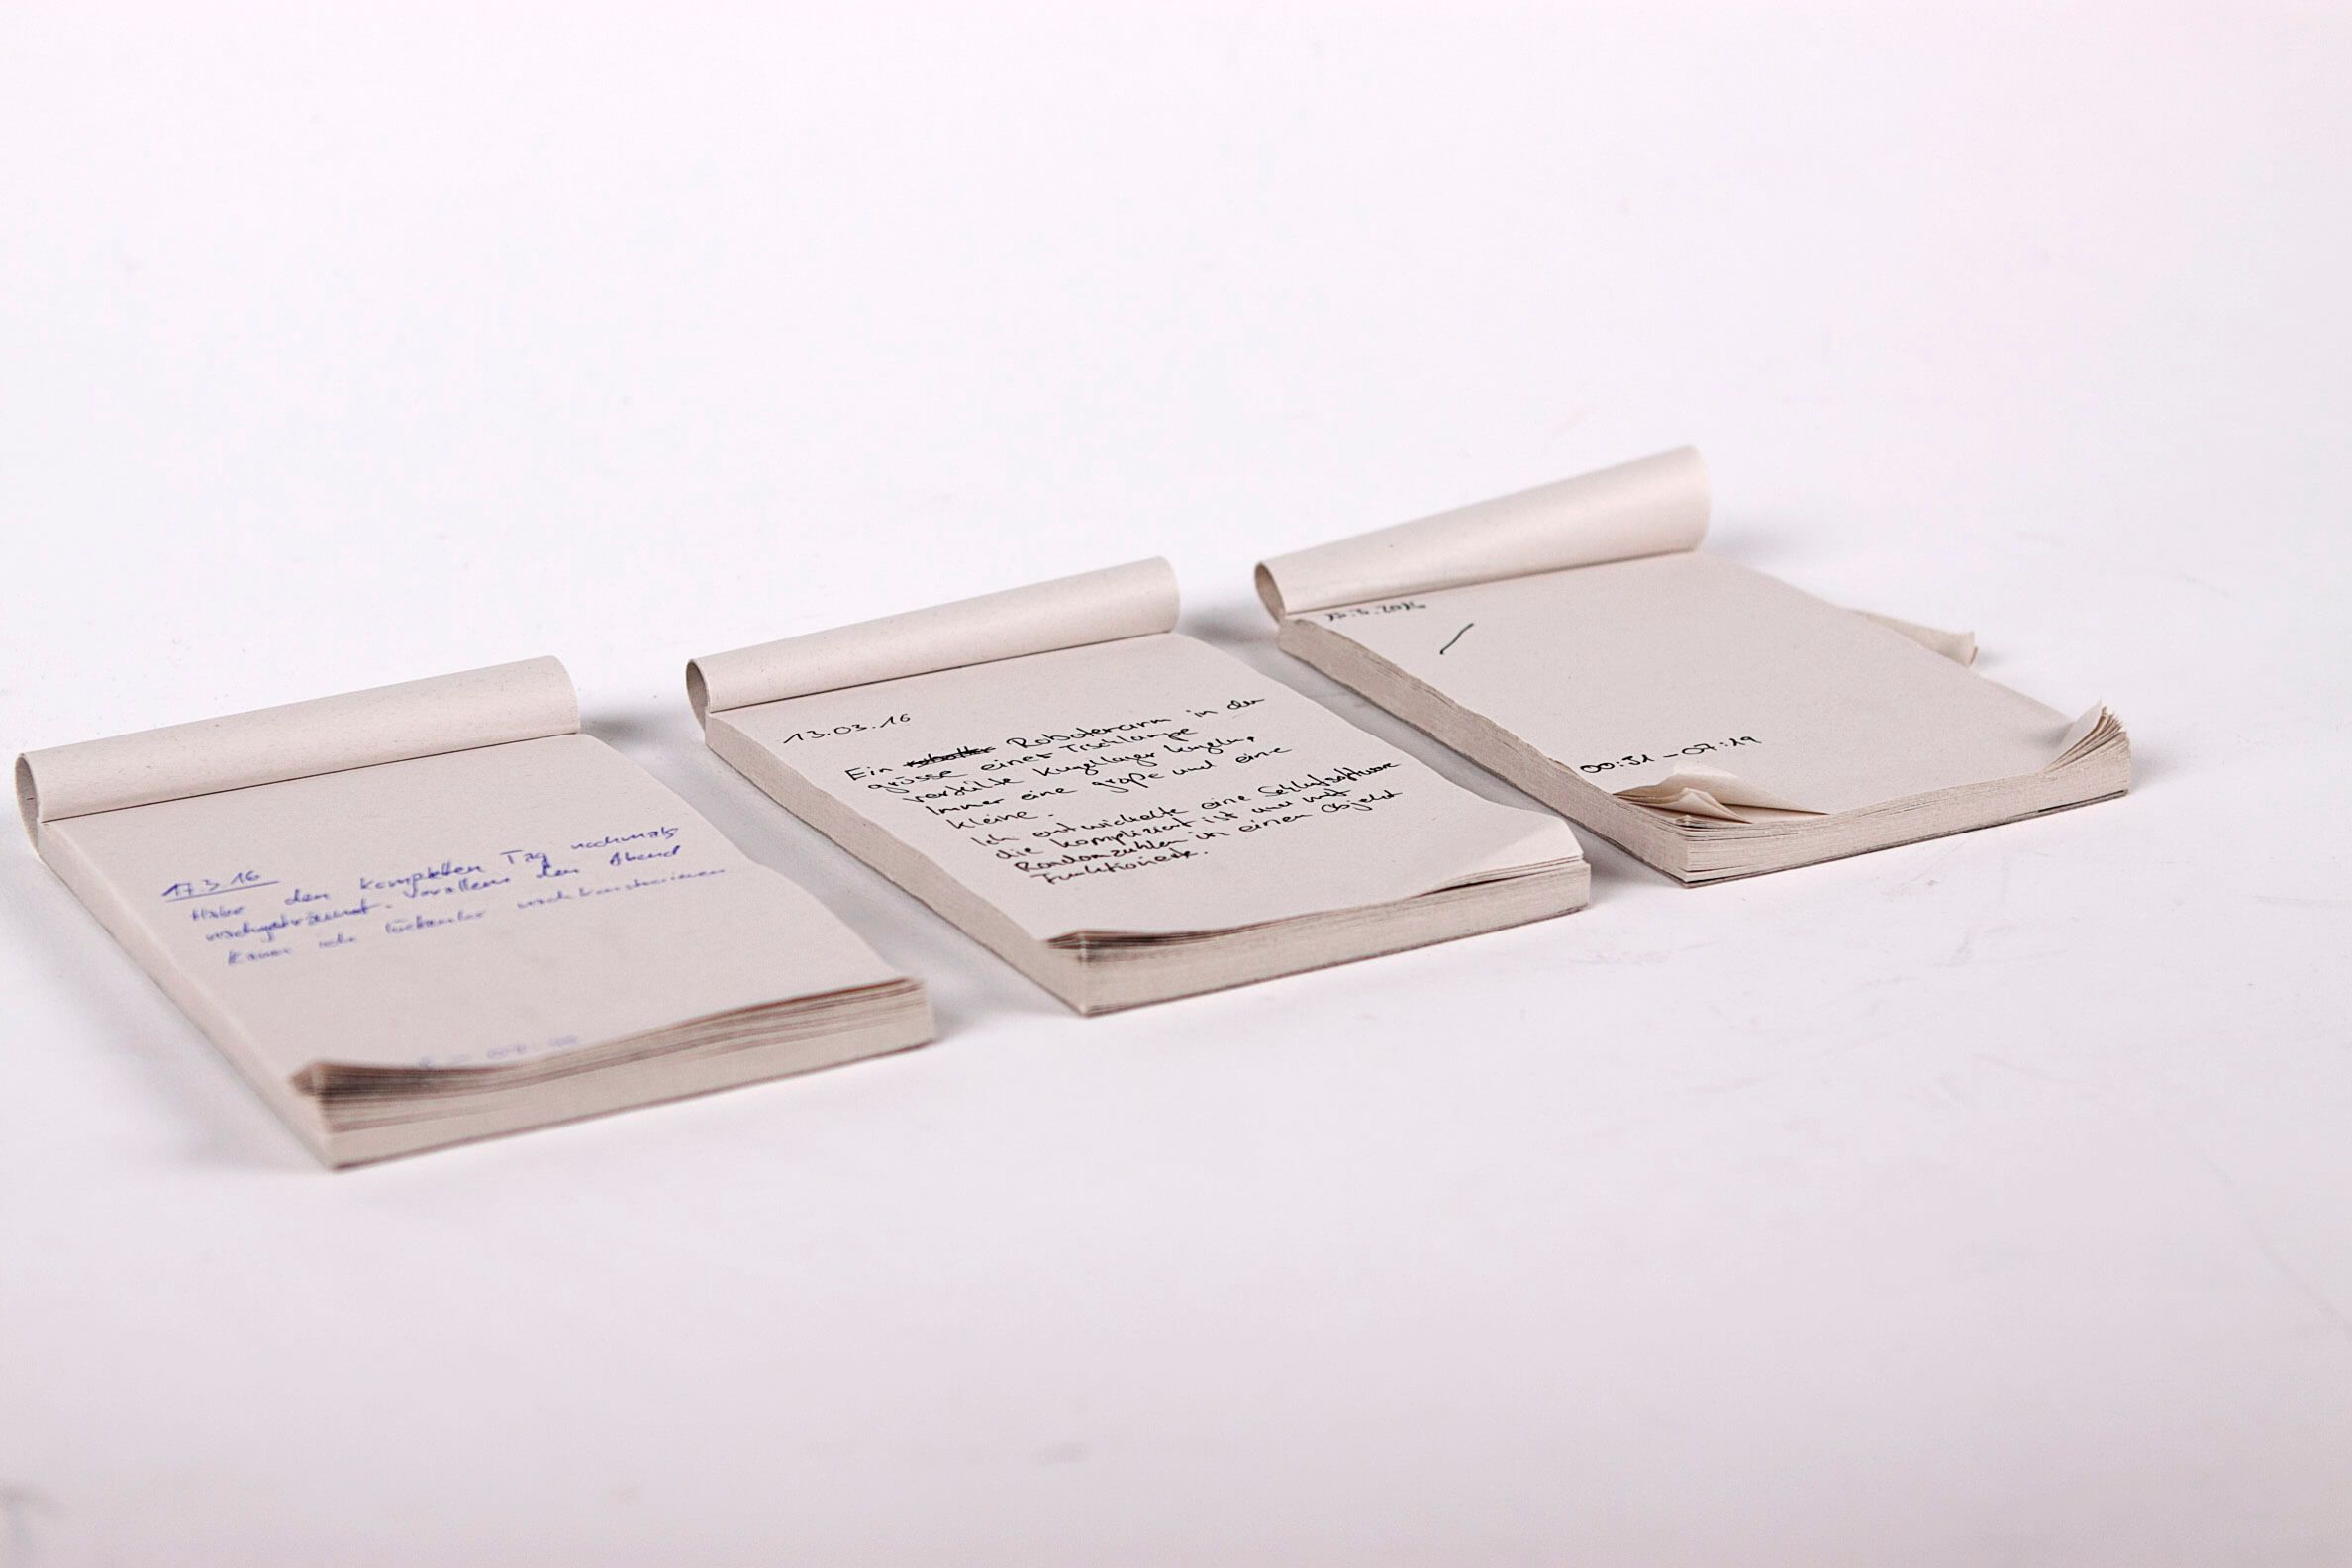 17.3.16
Habe den kompletten Tag nochmals
nachgeträumt. Vorallem den Abend
Kann ich
13.03.16
Ein Roboterarm in der
grösse einer Tischlampe
verteilte Kugellager kugeln,
Immer eine große und eine
kleine.
Ich entwickelte eine Schlafsoftware
die kompliziert ist und mit
Randomzahlen in einen Objekt
Funktioniert.
.3.2016
/
00:31 - 07:19